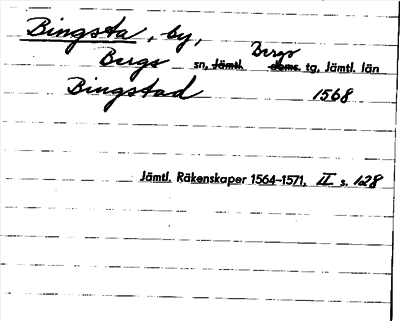 Bingsta, by,
Bergs sn, Jämtl. Bergs doms. tg, Jämtl. län
Bingstad 1568
Jämtl. Räkenskaper 1564-1571, II s. 128